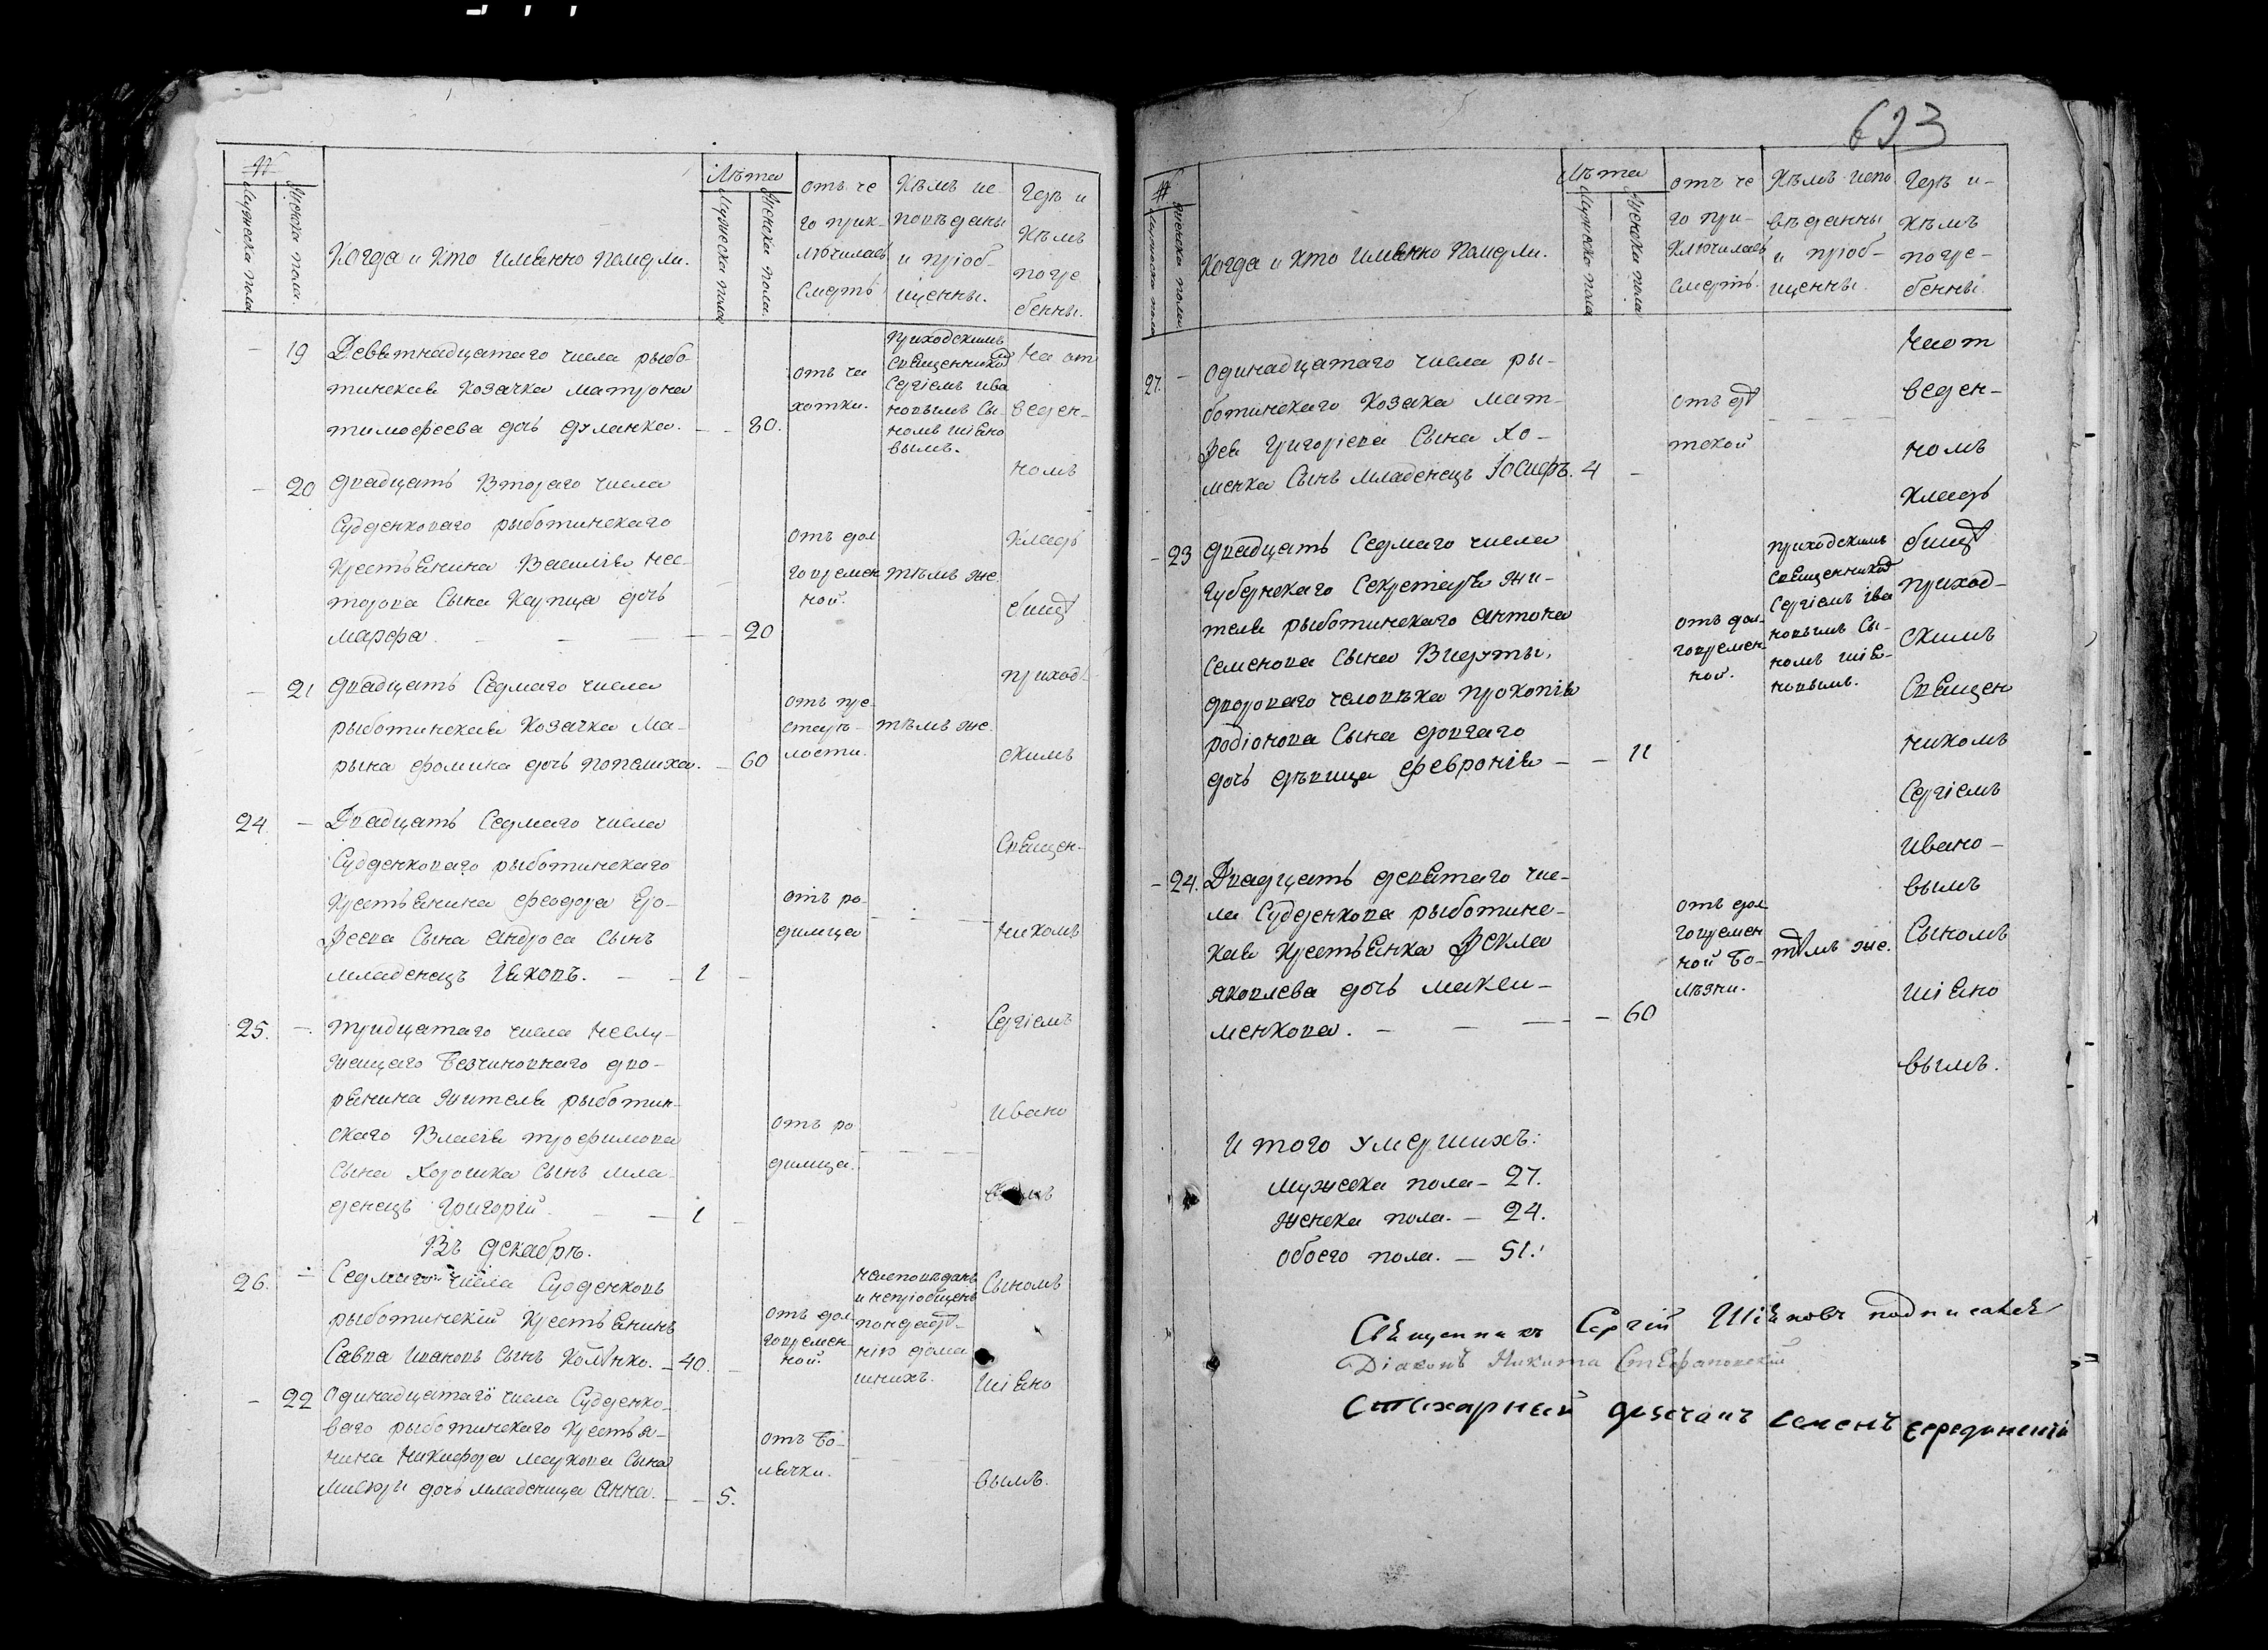 693
№
Мужеска пола
Женска пола.
Когда и Кто именно Померли.
Лѣта
Мужеска пола
Женска пола.
отъ че
го прик-
лючилась
смерть
Кѣмъ ис-
повѣданы
и пріоб-
щенны.
Гдѣ и
Кѣмъ
погре
бенны.
19
Девятнадцатаго числа рыбо-
тинская Козачка матрона
тимофеева дочь
80.
отъ ча
хотки.
приходскимъ
священникомъ
Сергіемъ ива
новымъ Сы-
номъ шіяно
вымъ.
20
двадцать Втораго числа
Судденковаго рыботинскаго
крестьянина Василія нес-
торова Сына дочь
марфа.
20
отъ дол
говремен
ной.
тѣмъ же.
21
двадцать Седмаго числа
рыботинская Козачка ма-
рина фомина дочь
60
отъ пре-
старѣ-
лости.
тѣмъ же.
24.
Двадцать Седмаго числа
Судденковаго рыботинскаго
Крестьянина феодора
Сына андроса Сынъ
младенецъ Іяковъ.
1
отъ ро-
димца
25.
тридцатаго числа неслу-
жащаго безчиновнаго дво-
рянина жителя рыботин-
скаго Власія трофимова
сына Хорошка сынъ мла-
денецъ Григорій.
1
отъ ро
димца.
Въ декабрѣ.
26.
Седмаго числа Судденковъ
рыботинскій Крестьянинъ
Савва Ивановъ Сынъ
40.
отъ дол
говремен
ной.
неисповѣданъ
и непріобщенъ
понерадѣ-
нію дома
шнихъ.
22
Одинадцатаго числа Судденко-
ваго рыботинскаго Крестья-
нина Никифора маркова Сына
дочь младеница Анна.
5.
отъ бо-
лячки.
на от
веден-
номъ
кладъ
бищѣ
приход
скимъ
Священ-
никомъ
Сергіемъ
Ивано
Сыномъ
Шіяно
вымъ.
№
Мужеска пола
женска пола
Когда и Кто именно Померли.
Лѣта
Мужеска пола
Женска пола
отъ че
го при-
ключилась
смерть.
Кѣмъ испо
вѣданны
и пріоб-
щенны.
Гдѣ и-
Кѣмъ
погре-
бенны.
27.
одинадцатаго числа ры-
ботинскаго Козака мат-
ѳея Григоріева Сына Хо-
менка Сынъ младенецъ Іосифъ.
4
отъ дѣ
тской
23
двадцать Седмаго числа
губернскаго Секретаря жи-
теля рыботинскаго антона
Семенова Сына
двороваго человѣка прокопія
родіонова Сына
дочь дѣвица февронія
11
отъ дол-
говремен-
ной.
приходскимъ
священникомъ
Сергіемъ ива
новымъ Сы-
номъ шія-
новымъ.
24.
Двадцать девятаго чис-
ла Судденкова рыботинс-
кая Крестьянка Ѳекла
яковлева дочь макси-
менкова.
60
отъ дол
говремен
ной бо-
лѣзни.
тѣмъ же.
на от
веден-
номъ
кладъ
бищѣ
приход-
скимъ
Священ
никомъ
Сергіемъ
ивано-
вымъ
Сыномъ
шіяно
вымъ.
итого умершихъ:
мужеска пола- 27.
женска пола. - 24.
обоего пола. - 51.
Священникъ Сергій Шіяновъ подписался
Діаконъ Никита Стефановскій
Стихарный дьячокъ Семенъ